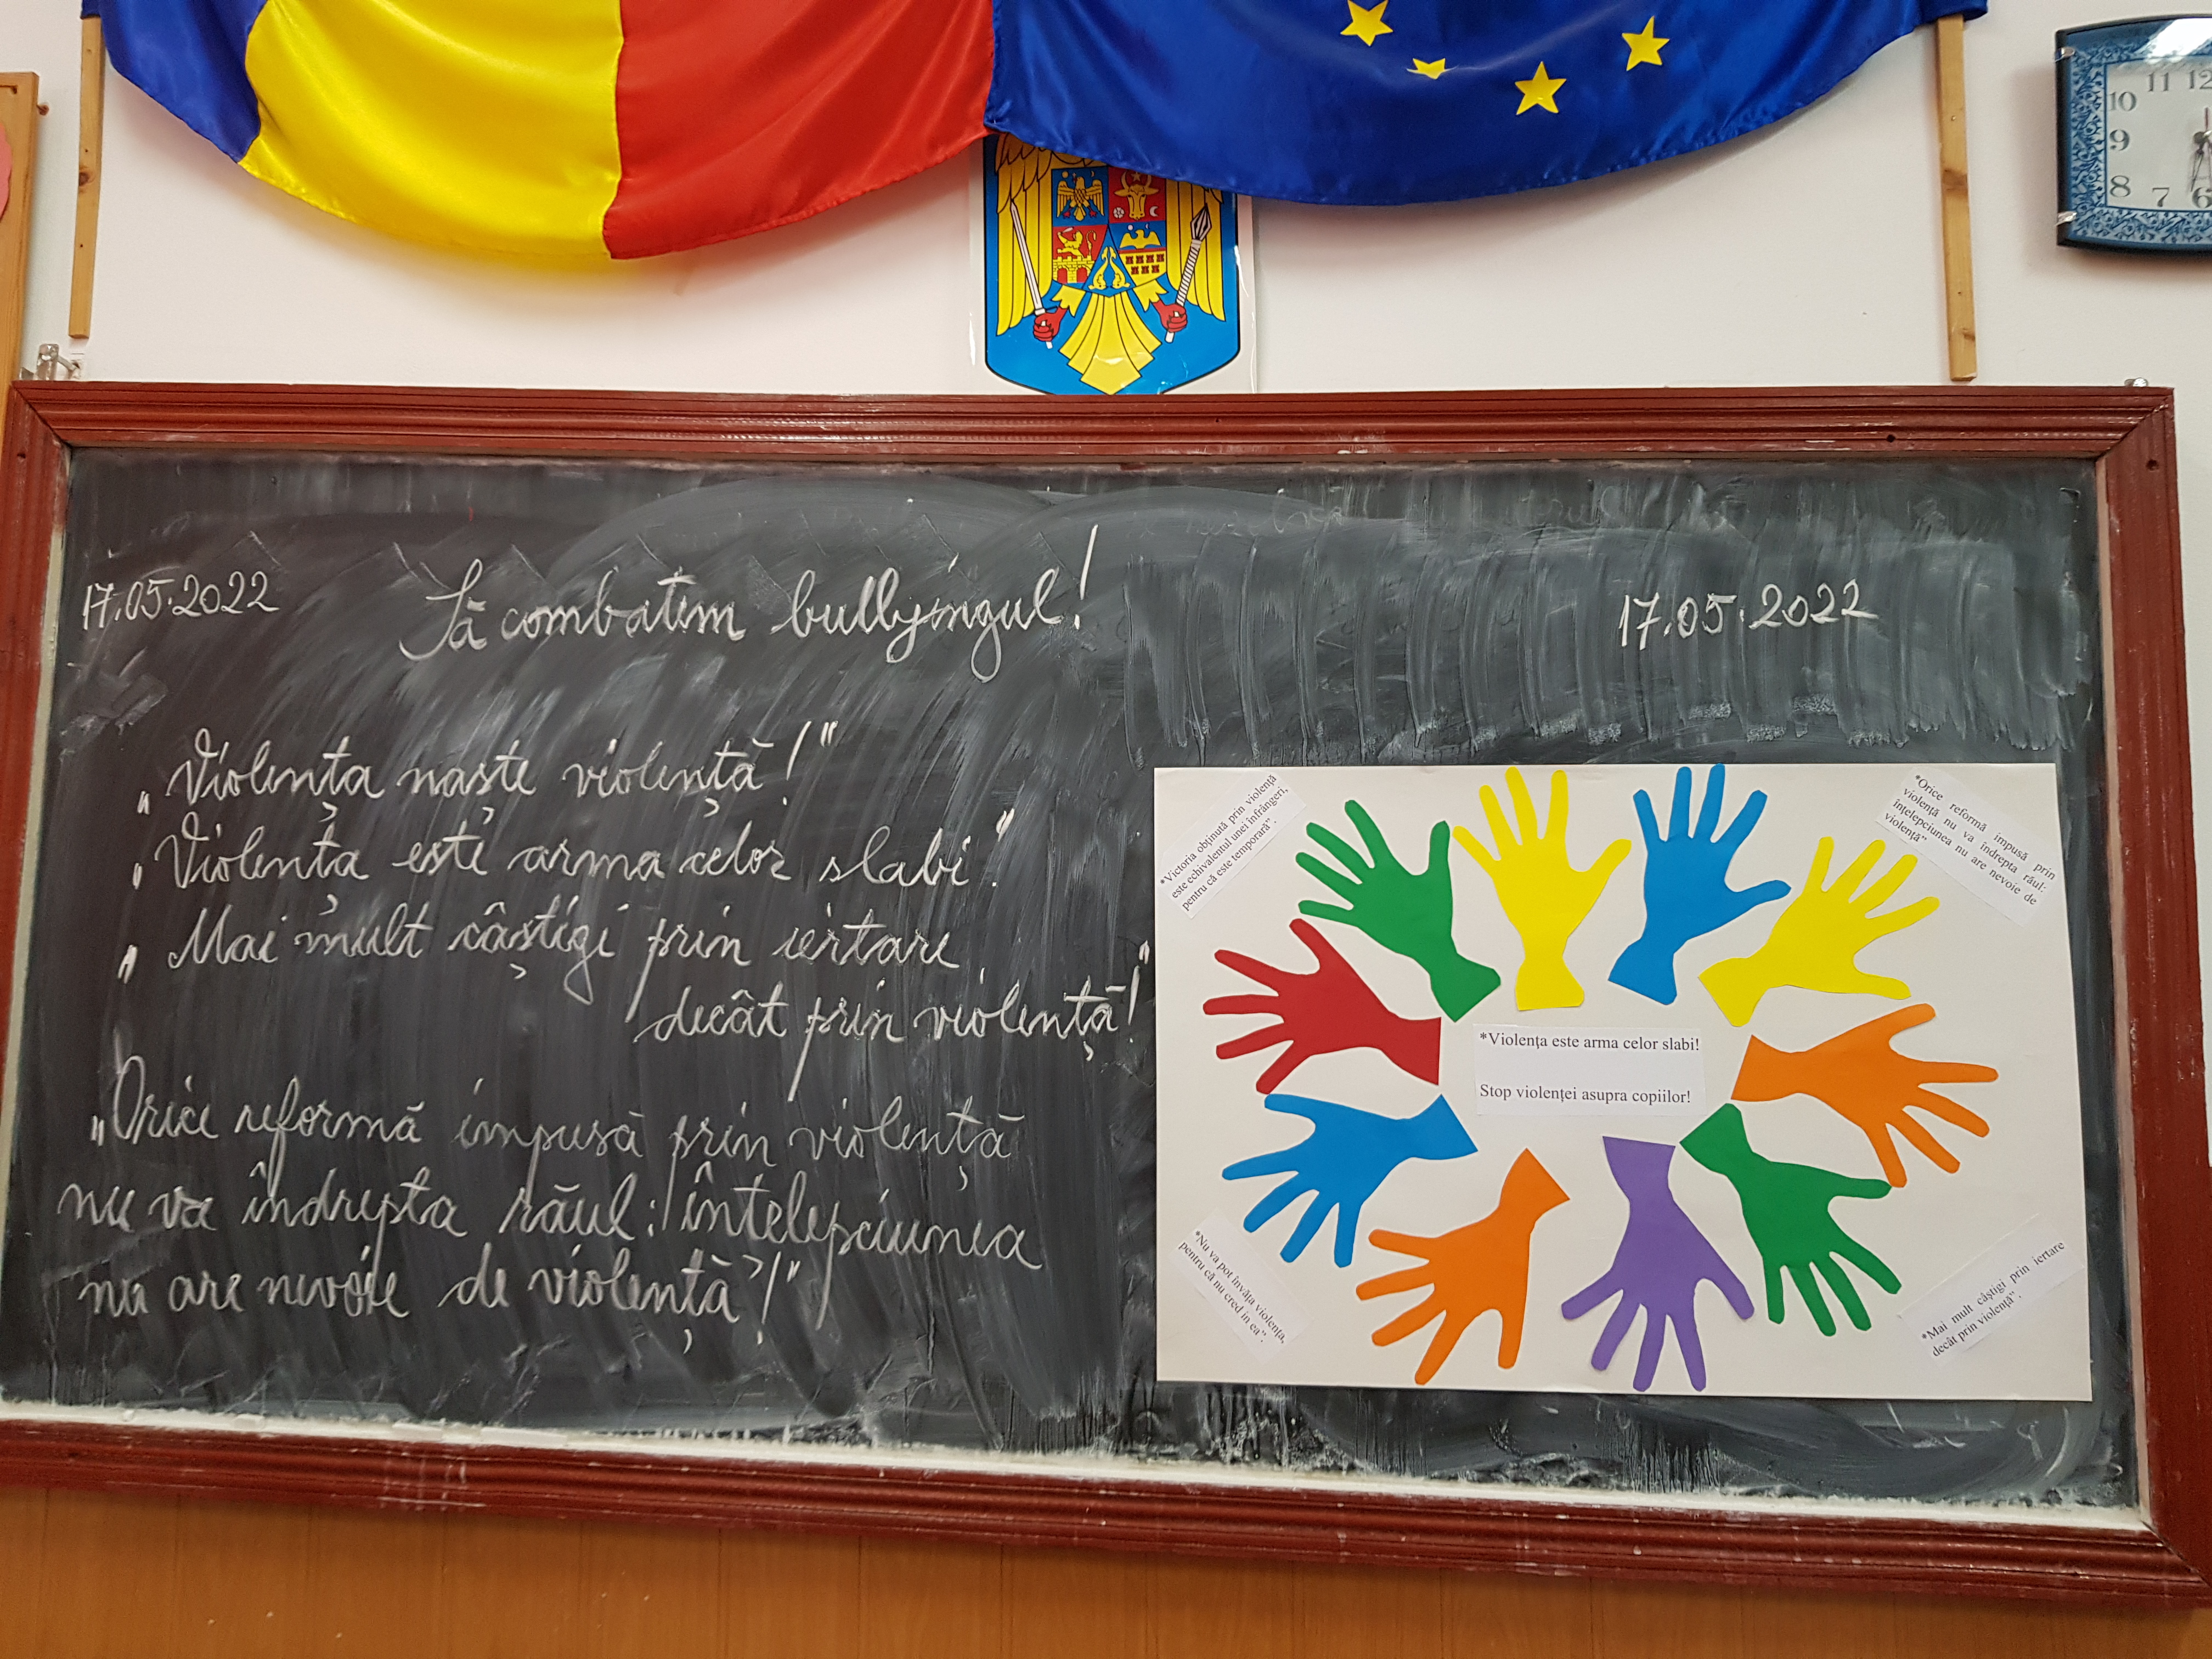 17.05.2022
Să combatem bullyingul!
17.05.2022
„Violența naște violență!"
„Violența este arma celor slabi".
„Mai mult câștigi prin iertare
decât prin violență!"
„Orice reformă impusă prin violență
nu va îndrepta răul: înțelepciunea
nu are nevoie de violență!"
*Victoria obținută prin violență
este echivalentul unei înfrângeri,
pentru că este temporară".
*Orice reformă impusă prin
violență nu va îndrepta răul:
înțelepciunea nu are nevoie de
violență"
*Violența este arma celor slabi!
Stop violenței asupra copiilor!
*Nu va pot învăța violența,
pentru că nu cred în ea".
*Mai mult câștigi prin iertare
decât prin violență".
11 12
10
9
8
7 6